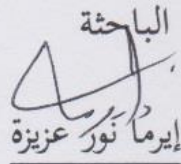 الباحثة
إيرما نور عزيزة